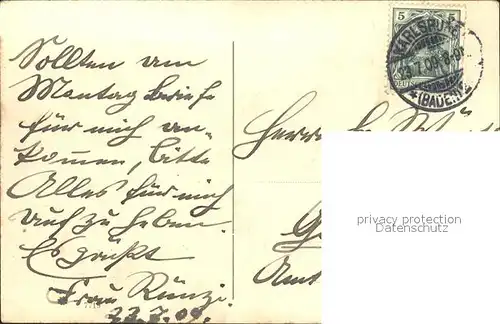 Sollten am
Montag Briefe
für mich an-
kommen, bitte
Alles für mich
auf zu heben.
Es grüßt
Frau Künzi.
22.7.09.
5
KARLSRUHE
(BADEN) 2
Herrn
Amt
privacy protection
Datenschutz